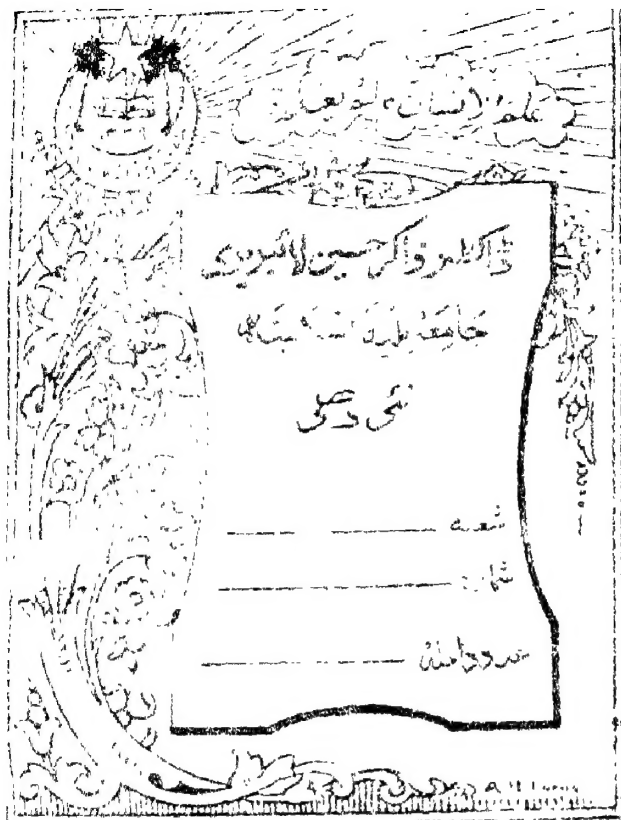 علم الانسان مالم يعلم
ڈاکٹر ذاکر حسین لائبریری
جامعہ ملیہ اسلامیہ
نئی دہلی
شعبہ
شمار
عدد داخلہ